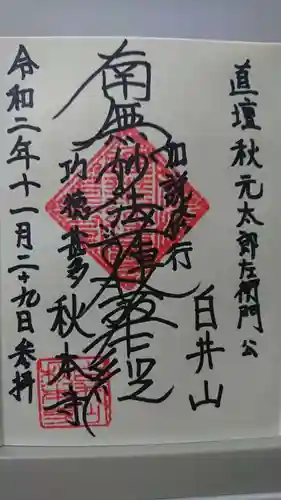 直壇 秋元太郎左衛門公
白井山
南無妙法蓮華経
功徳甚多
秋本寺
令和二年十一月二十九日 参拝